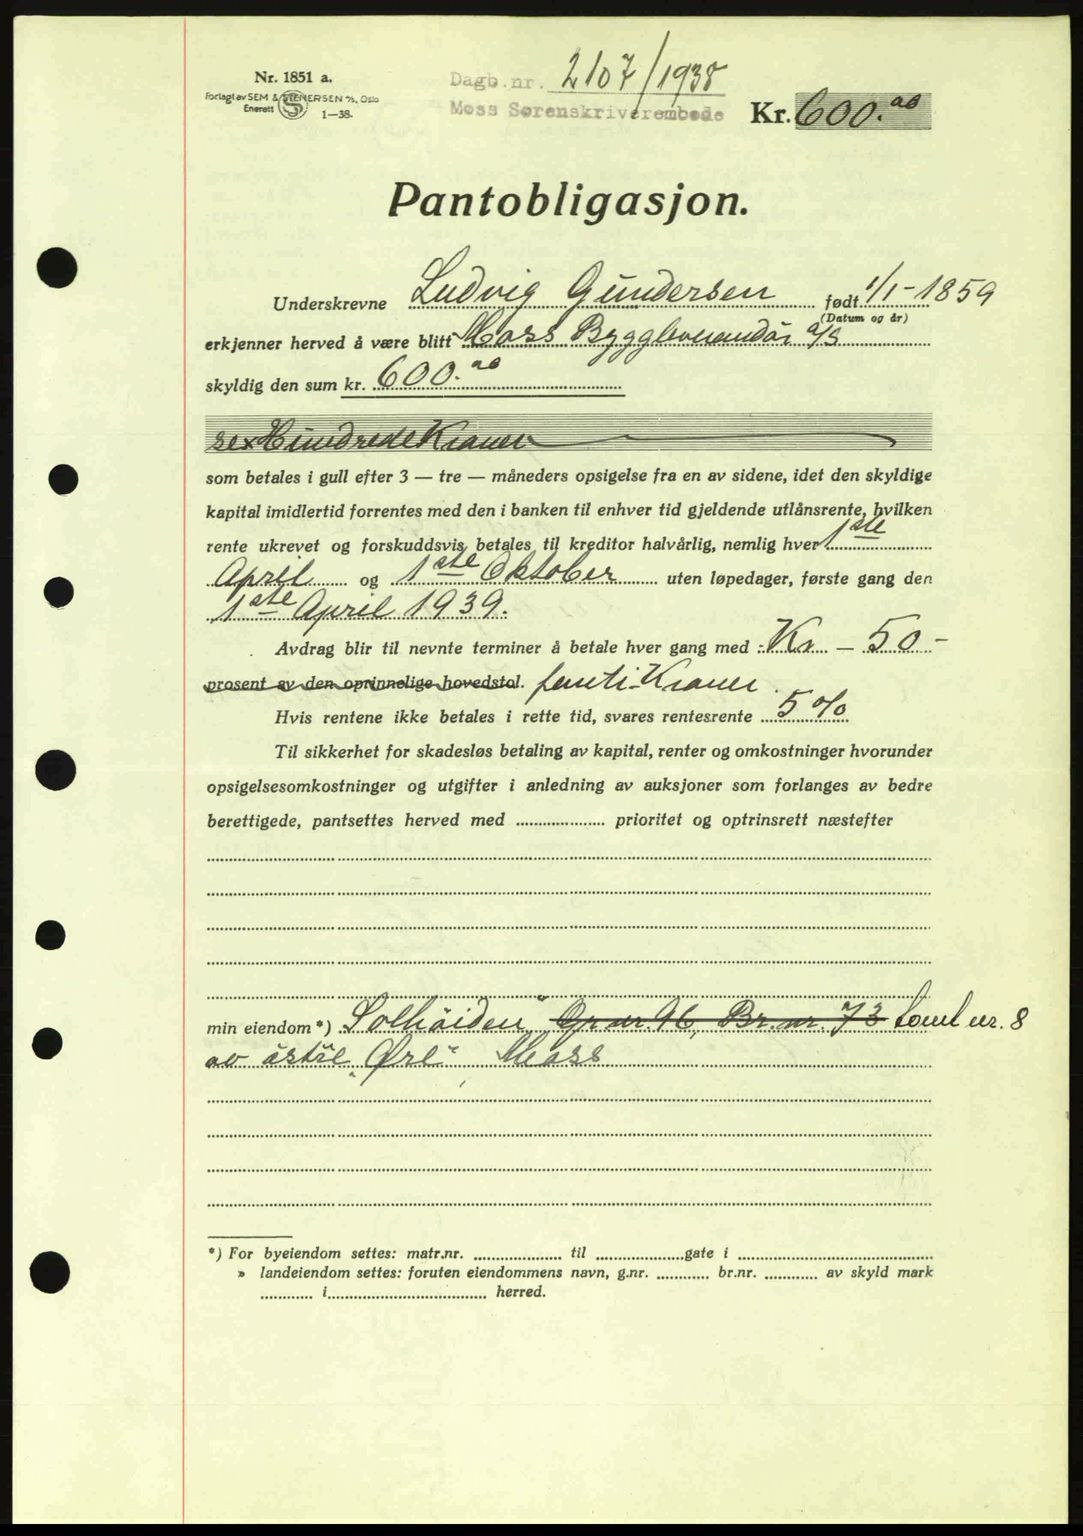 Nr. 1851 a.
Forlagt av SEM & STENERSEN A/S, Oslo
Enerett
1—38.
Dagb.nr. 2107/1938
Moss Sorenskriverembede
Kr. 600.00
Pantobligasjon.
Underskrevne Ludvig Gundersen født 1/1-1859
(Datum og år)
erkjenner herved å være blitt Moss Byggleverandør A/S
skyldig den sum kr. 600.00
sexHundredeKroner
som betales i gull efter 3 — tre — måneders opsigelse fra en av sidene, idet den skyldige
kapital imidlertid forrentes med den i banken til enhver tid gjeldende utlånsrente, hvilken
rente ukrevet og forskuddsvis betales til kreditor halvårlig, nemlig hver 1ste
April og 1ste Oktober uten løpedager, første gang den
1ste April 1939.
Avdrag blir til nevnte terminer å betale hver gang med Kr — 50 -
prosent av den oprinnelige hovedstol. femti-Kroner.
Hvis rentene ikke betales i rette tid, svares rentesrente 5 %
Til sikkerhet for skadesløs betaling av kapital, renter og omkostninger hvorunder
opsigelsesomkostninger og utgifter i anledning av auksjoner som forlanges av bedre
berettigede, pantsettes herved med .................... prioritet og optrinsrett næstefter
min eiendom*) Solhöiden" Gr. nr. 96, Br. nr. 73 tomt nr. 8
av östre "Øre" Moss
*) For byeiendom settes: matr.nr. .................... til .................... gate i ....................
» landeiendom settes: foruten eiendommens navn, g.nr. ............ br.nr. ............ av skyld mark
............ i.................................... herred.